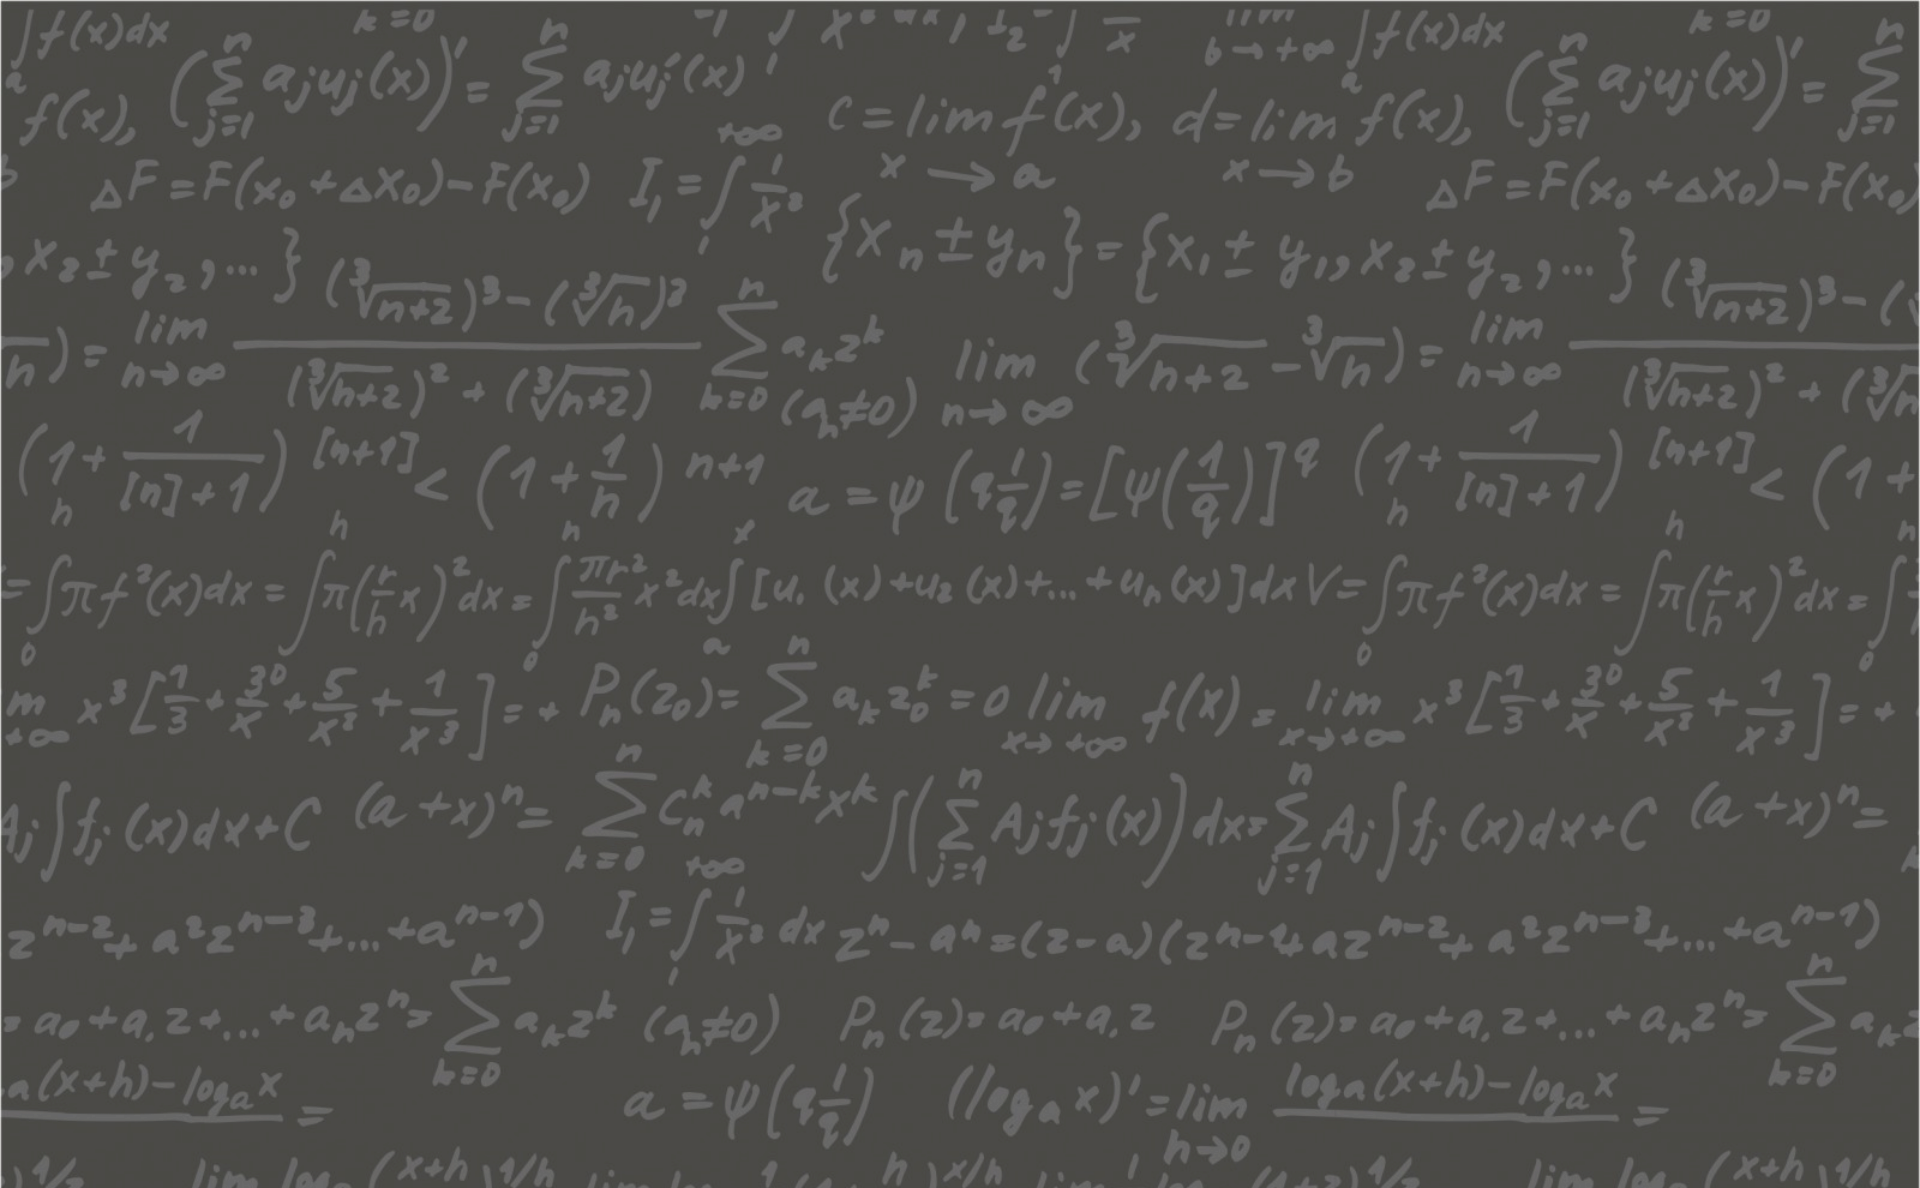 ∫ f(x)dx k=0 b→+∞ ∫ f(x)dx k=0
a (∑ⁿ_{j=1} a_j u_j(x))' = ∑ⁿ_{j=1} a_j u_j'(x) a (∑ⁿ_{j=1} a_j u_j(x))' = ∑ⁿ_{j=1}
f(x), c = lim_{x→a} f(x), d = lim_{x→b} f(x),
b ΔF = F(x₀ + Δx₀) – F(x₀) I₁ = ∫₁^{+∞} 1/x² ΔF = F(x₀ + Δx₀) – F(x₀)
, x₂ ± y₂, ... } {x_n ± y_n} = {x₁ ± y₁, x₂ ± y₂, ... }
h) = lim_{n→∞} ((∛(n+2))³ – (∛h)²)/((∛(h+2))² + (∛(n+2)) ∑ⁿ_{k=0} a_k z^k (a_n≠0) lim_{n→∞} (∛(n+2) – ∛n) = lim_{n→∞} (∛(n+2))³ – ( / (∛(h+2))² + (∛n
(1 + 1/([n]+1))^{[n+1]} < (1 + 1/n)^{n+1} a = ψ(q 1/q) = [ψ(1/q)]^q (1 + 1/([n]+1))^{[n+1]} < (1 +
= ∫₀^h πf²(x)dx = ∫^h π(r/h x)² dx = ∫₀^n πr²/h² x² dx ∫_a^x [u₁(x) + u₂(x) + ... + u_n(x)]dx V = ∫₀^h πf²(x)dx = ∫^h π(r/h x)² dx = ∫₀^n
m_{+∞} x³[1/3 + 3⁰/x + 5/x² + 1/x³] = + P_n(z₀) = ∑ⁿ_{k=0} a_k z₀^k = 0 lim_{x→+∞} f(x) = lim_{x→+∞} x³[1/3 + 3⁰/x + 5/x² + 1/x³] = +
A_j ∫ f_j(x)dx + C (a + x)ⁿ = ∑ⁿ_{k=0} C_n^k a^{n–k} x^k ∫(∑ⁿ_{j=1} A_j f_j(x))dx = ∑ⁿ_{j=1} A_j ∫ f_j(x)dx + C (a + x)ⁿ =
z^{n–2} + a² z^{n–3} + ... + a^{n–1}) I₁ = ∫₁^{+∞} 1/x² dx zⁿ – aⁿ = (z – a)(z^{n–1} + az^{n–2} + a² z^{n–3} + ... + a^{n–1})
= a₀ + a₁z + ... + a_n zⁿ = ∑ⁿ_{k=0} a_k z^k (a_n≠0) P_n(z) = a₀ + a₁z P_n(z) = a₀ + a₁z + ... + a_n zⁿ = ∑ⁿ_{k=0} a_k z
a(x+h) – log_a x = a = ψ(q 1/q) (log_a x)' = lim_{h→0} (log_a(x+h) – log_a x) =
lim log (x+h 1/h h ) x/h lim log (x+h 1/h